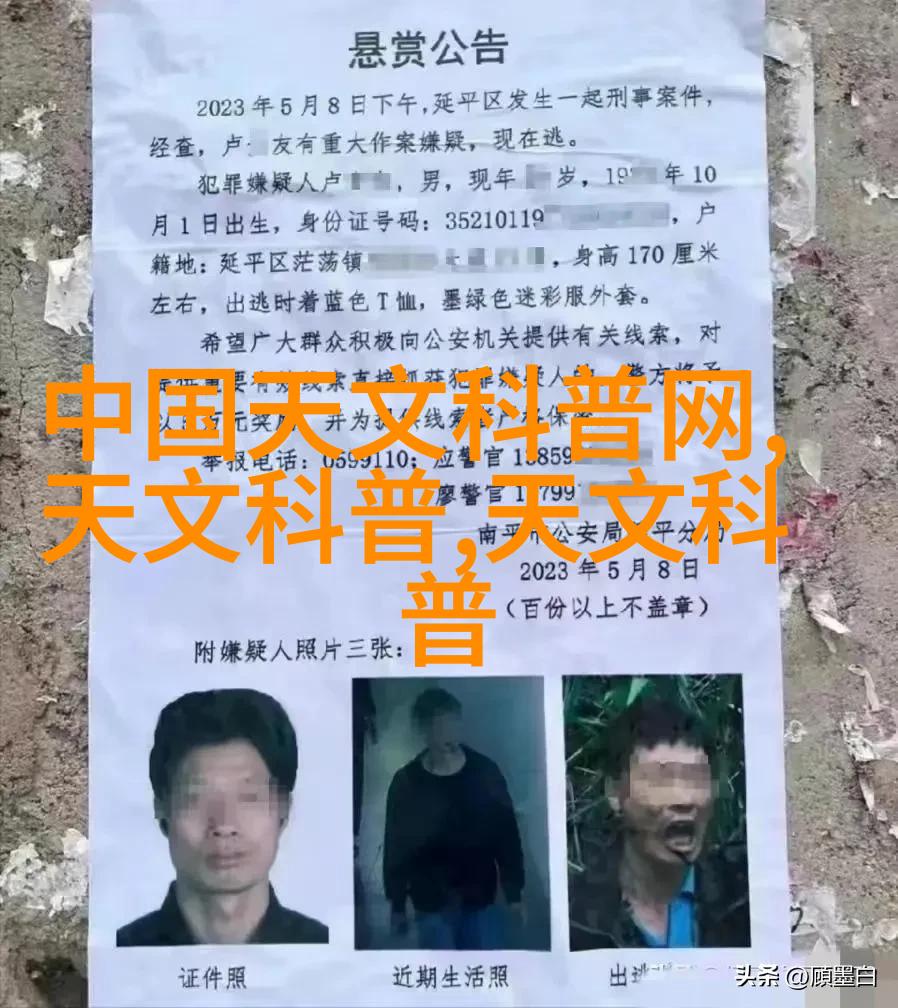 悬赏公告
2023年5月8日下午,延平区发生一起刑事案件,
经查,卢 友有重大作案嫌疑,现在逃。
犯罪嫌疑人卢 ,男,现年 岁,19 年10
月1日出生,身份证号码:35210119 ,户
籍地:延平区茫荡镇 ,身高170厘米
左右,出逃时着蓝色T恤,墨绿色迷彩服外套。
希望广大群众积极向公安机关提供有关线索,对
中国天文科普网,
天文科普,天文科
普
举报电话:0599110;应警官 13859
廖警官 1 799
南平市公安局延平分局
2023年5月8日
(百份以上不盖章)
附嫌疑人照片三张:
证件照
近期生活照
出逃
头条 @顾墨白